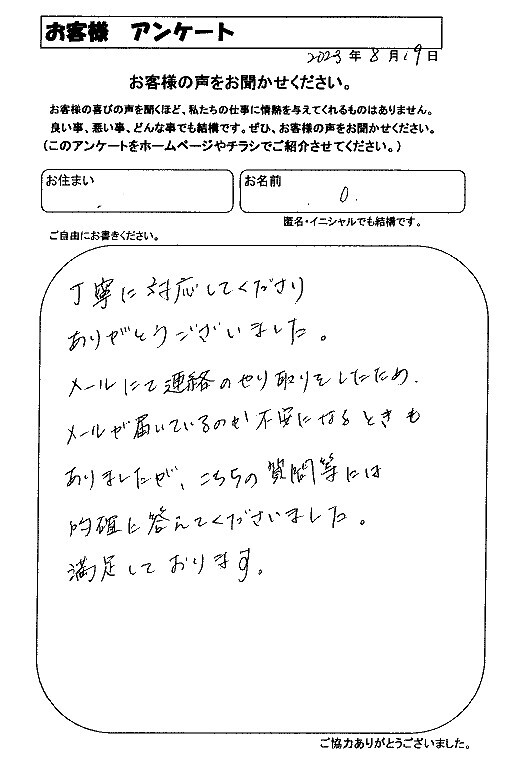 お客様 アンケート
2023年8月19日
お客様の声をお聞かせください。
お客様の喜びの声を聞くほど、私たちの仕事に情熱を与えてくれるものはありません。
良い事、悪い事、どんな事でも結構です。ぜひ、お客様の声をお聞かせください。
(このアンケートをホームページやチラシでご紹介させてください。)
お住まい
お名前
O.
匿名・イニシャルでも結構です。
ご自由にお書きください。
丁寧に対応してくださり
ありがとうございました。
メールにて連絡のやり取りをしたため、
メールが届いているのか不安になるときも
ありましたが、こちらの質問等には
的確に答えてくださいました。
満足しております。
ご協力ありがとうございました。